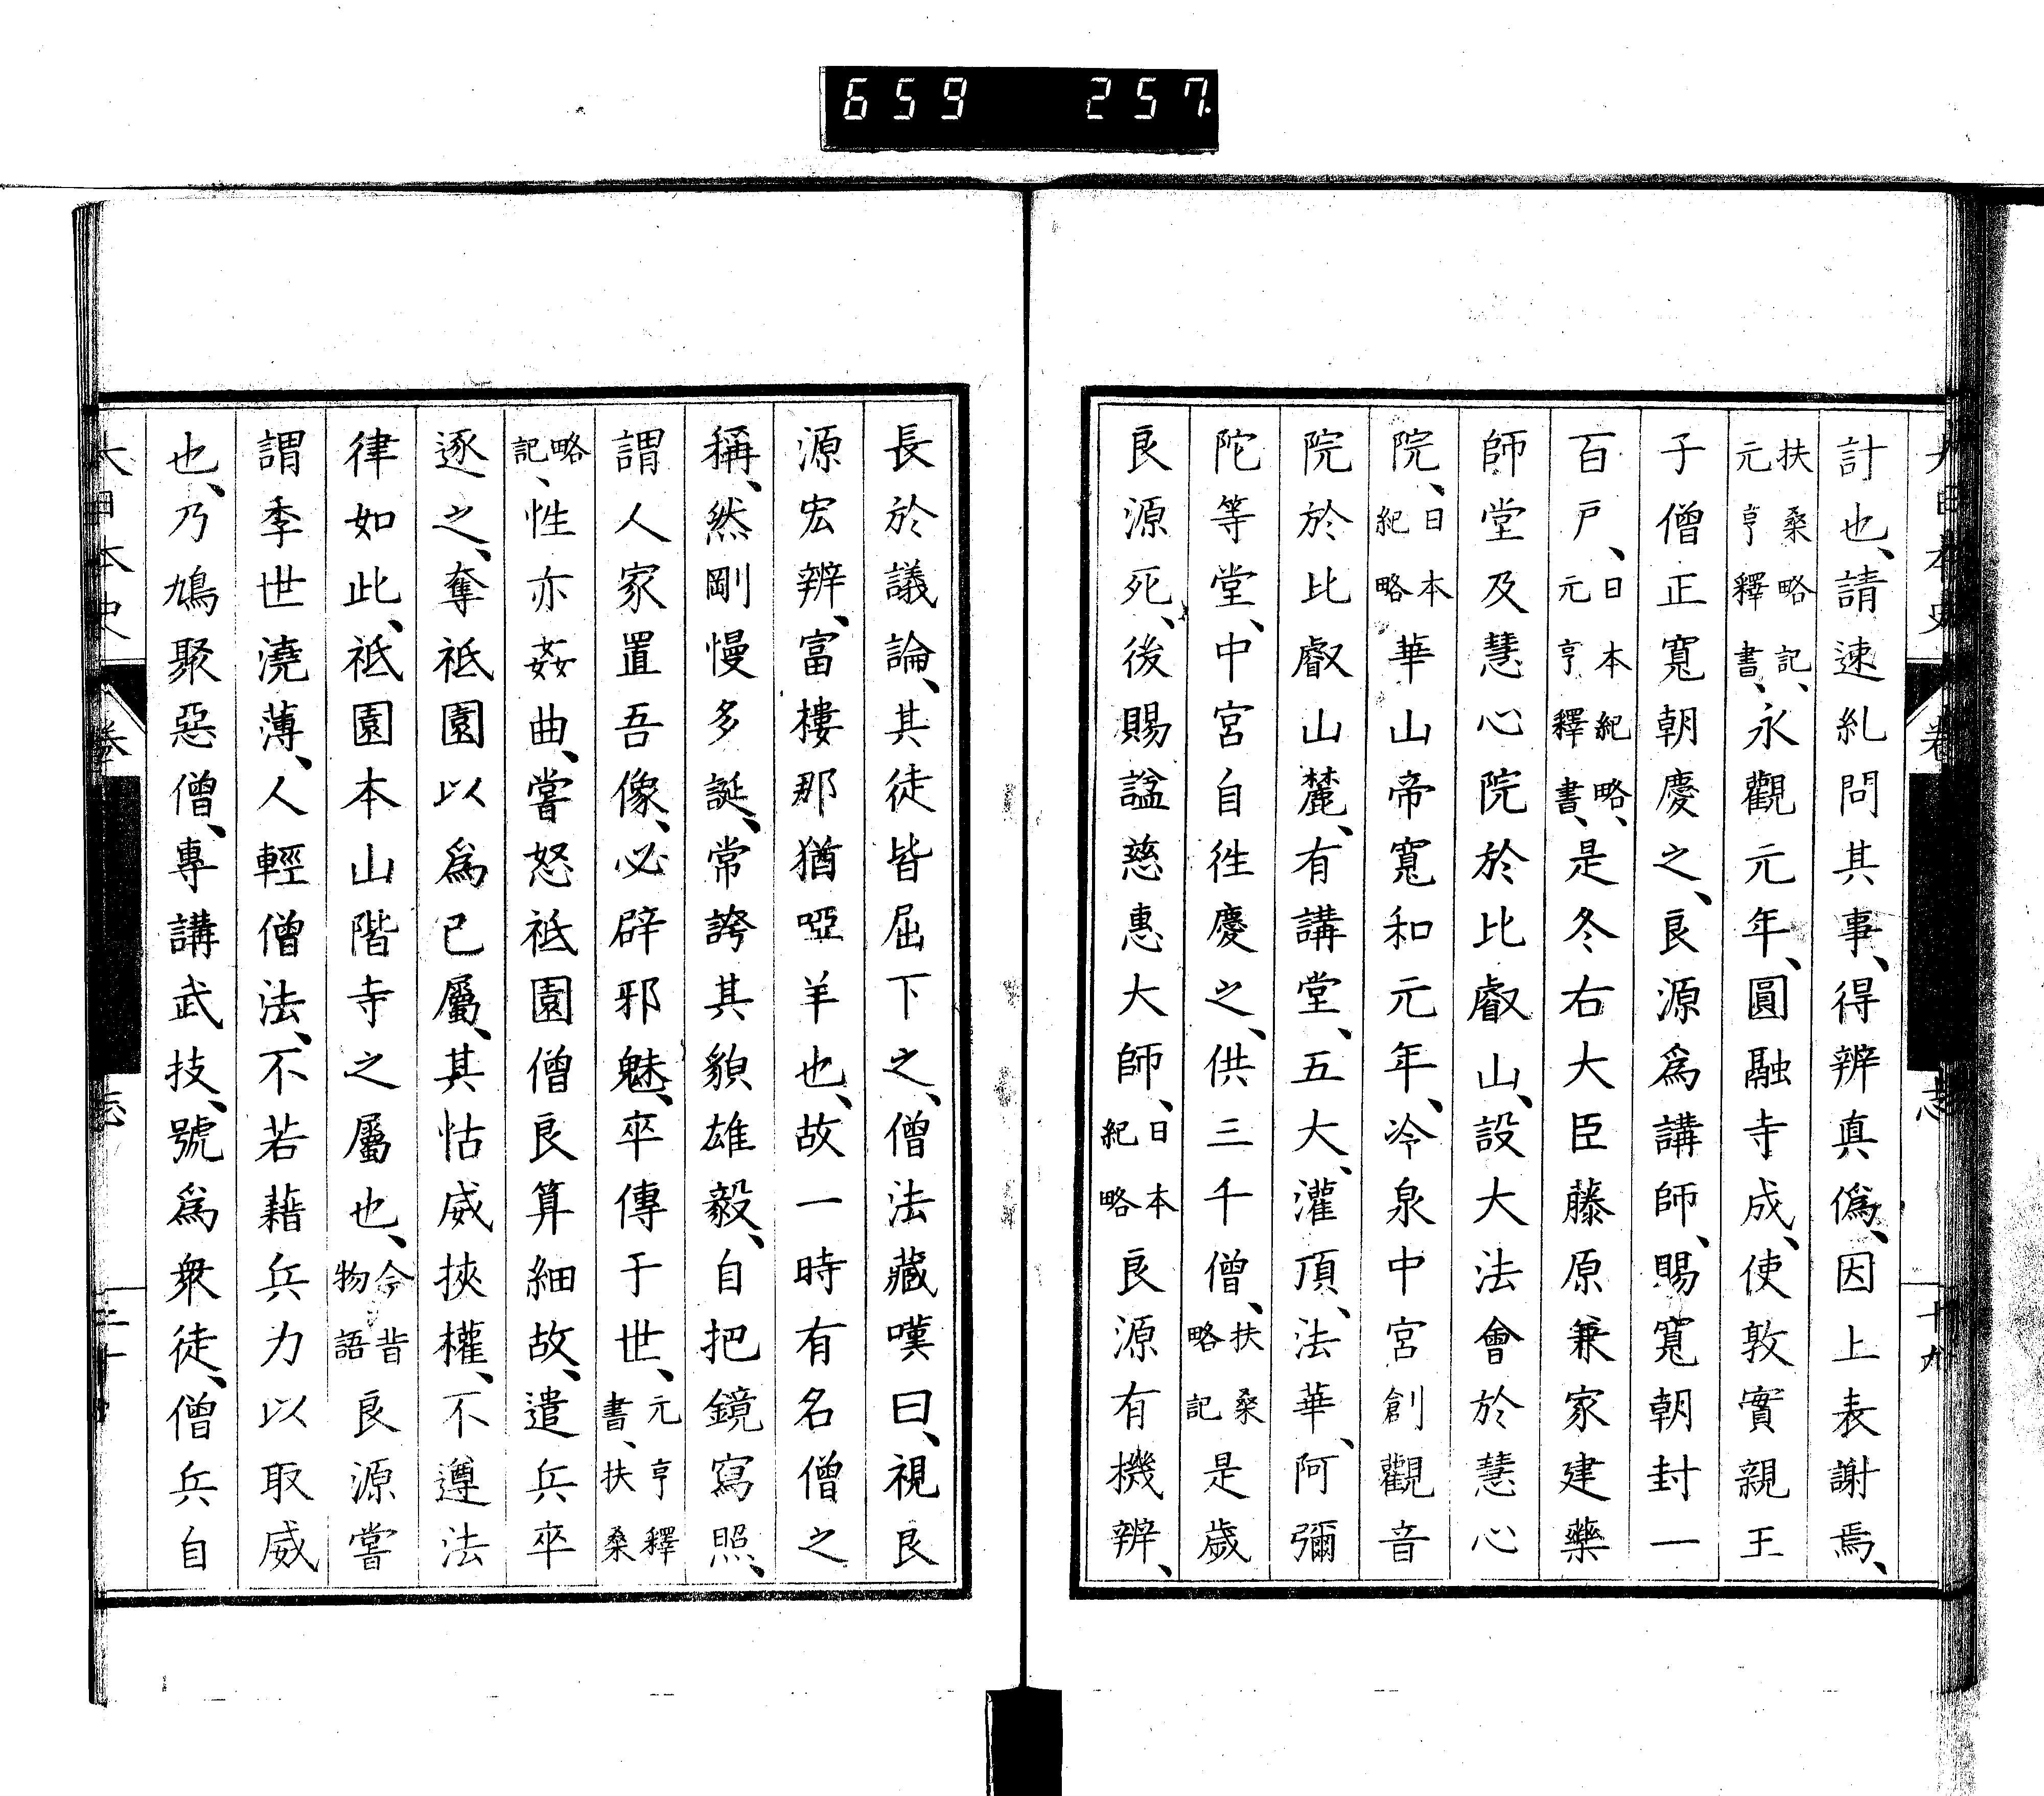 659 257
計也、請速糺問其事、得辨真僞、因上表謝焉、
扶桑略記、元亨釋書、永觀元年、圓融寺成、使敦實親王
子僧正寬朝慶之、良源爲講師、賜寬朝封一
百戸、日本紀略、元亨釋書、是冬右大臣藤原兼家建藥
師堂及慧心院於比叡山、設大法會於慧心
院、日本紀略華山帝寬和元年、冷泉中宮創觀音
院於比叡山麓、有講堂、五大、灌頂、法華、阿彌
陀等堂、中宮自徃慶之、供三千僧、扶桑略記是歲
良源死、後賜謚慈惠大師、日本紀略良源有機辨、
長於議論、其徒皆屈下之、僧法藏嘆曰、視良
源宏辨、富樓那猶啞羊也、故一時有名僧之
稱、然剛慢多誕、常誇其貌雄毅、自把鏡寫照、
謂人家置吾像、必辟邪魅、卒傳于世、元亨釋書、扶桑
略記、性亦姦曲、嘗怒祇園僧良算細故、遣兵卒
逐之、奪祇園以爲己屬、其怙威挾權、不遵法
律如此、祇園本山階寺之屬也、今昔物語良源嘗
謂季世澆薄、人輕僧法、不若藉兵力以取威
也、乃鳩聚惡僧、專講武技、號爲衆徒、僧兵自
大日本史 卷 志